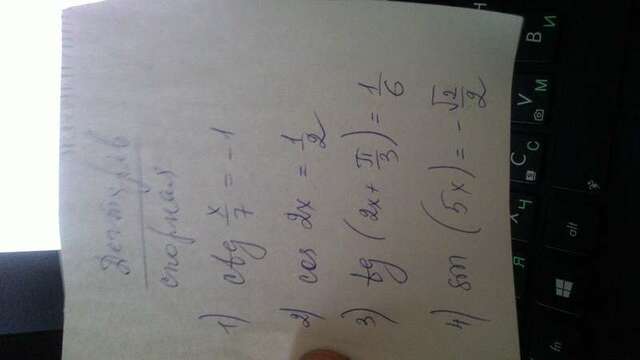 спорная
1) ctg x/7 = -1
2) cos 2x = 1/2
3) tg (2x + π/3) = 1/6
4) sin (5x) = - √2/2
Я Ч С С V М В И
fn alt